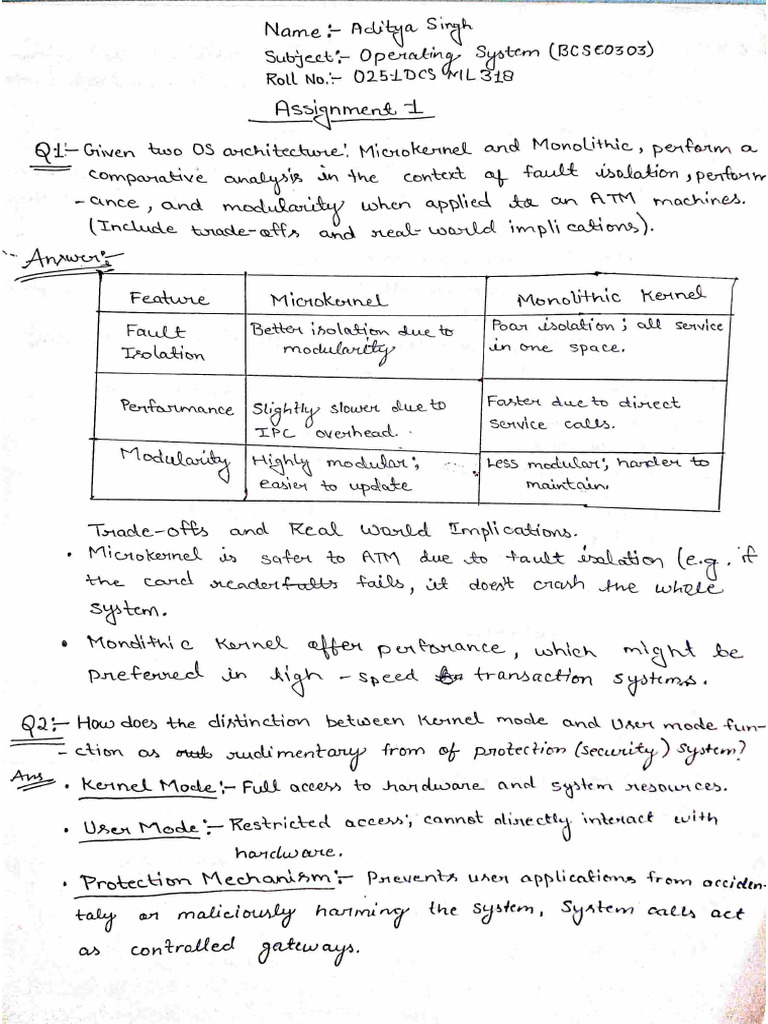 Name:- Aditya Singh
Subject:- Operating System (BCSE0303)
Roll No.:- 0251DCSML318
Assignment 1
Q1:- Given two OS architecture: Microkernel and Monolithic, perform a
comparative analysis in the context of fault isolation, perform
-ance, and modularity when applied to an ATM machines.
(Include trade-offs and real-world implications).
Answer:-
Feature Microkernel Monolithic Kernel
Fault Better isolation due to Poar isolation; all service
Isolation modularity in one space.
Performance Slightly slower due to Faster due to direct
IPC overhead. service calls.
Modularity Highly modular; Less modular; harder to
easier to update maintain.
Trade-offs and Real World Implications.
• Microkernel is safer to ATM due to fault isolation (e.g. if
the card reader fails, it does't crash the whole
system.
• Mondithic Kernel offer perforance, which might be
preferred in high-speed transaction systems.
Q2:- How does the distinction between Kernel mode and User mode fun-
-ction as rudimentary from of protection (security) system?
Ans • Kernel Mode:- Full access to hardware and system resources.
• User Mode:- Restricted access; cannot directly interact with
hardware.
• Protection Mechanism:- Prevents user applications from acciden-
taly or maliciously harming the system, System calls act
as controlled gateways.